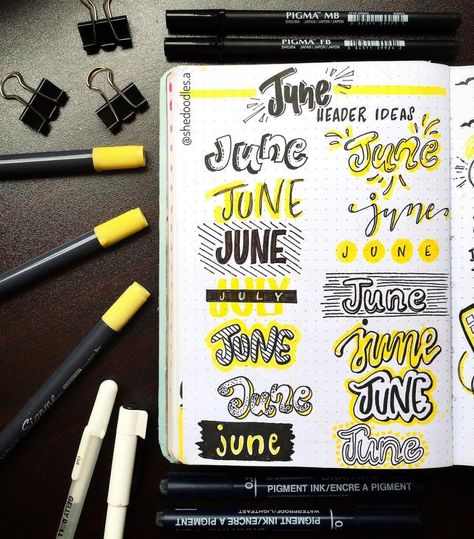 PIGMA™ MB
PIGMA™ FB
@shedoodles.a
June
HEADER IDEAS
June
June
JUNE
june
JUNE
JUNE
JULY
JULY
June
JUNE
june
June
JUNE
june
June
PIGMENT INK/ENCRE A PIGMENT
WATERPROOF/LIGHTFAST
INK/ENCRE A PIGMENT